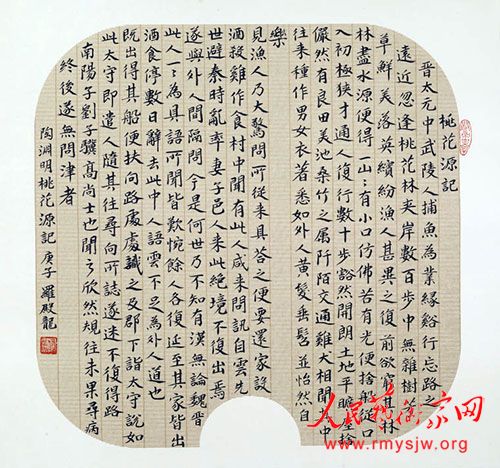 桃花源記
晉太元中武陵人捕魚為業緣谿行忘路之
遠近忽逢桃花林夾岸數百步中無雜樹芳
草鮮美落英繽紛漁人甚異之復前欲窮其林
林盡水源便得一山山有小口仿佛若有光便捨船從口
入初極狹才通人復行數十步豁然開朗土地平曠屋捨
儼然有良田美池桑竹之屬阡陌交通雞犬相聞其中
往來種作男女衣著悉如外人黃髮垂髫並怡然自
樂
見漁人乃大驚問所從來具答之便要還家設
酒殺雞作食村中聞有此人咸來問訊自雲先
世避秦時亂率妻子邑人來此絕境不復出焉
遂與外人間隔問今是何世乃不知有漢無論魏晉
此人一一為具語所聞皆歎惋餘人各復延至其家皆出
酒食停數日辭去此中人語雲不足為外人道也
既出得其船便扶向路處處識之及郡下詣太守說如
此太守即遣人隨其往尋向所誌遂迷不復得路
南陽子劉子驥高尚士也聞之欣然規往未果尋病
終後遂無問津者
陶淵明桃花源記庚子羅殿龍
人民藝術家网
www.rmysjw.org